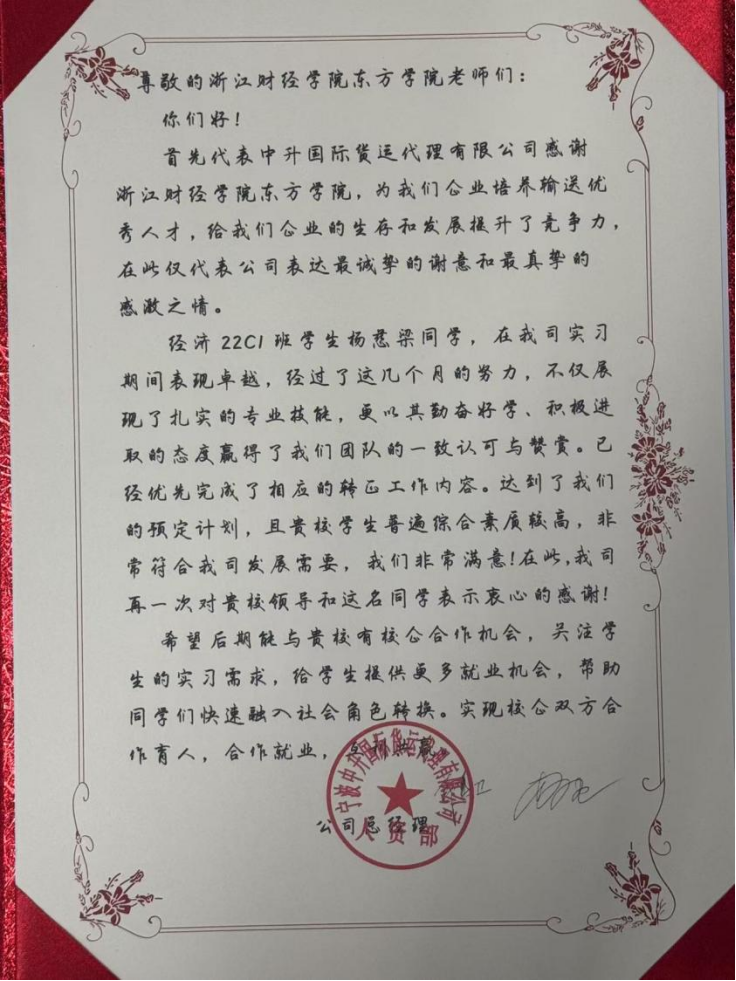 尊敬的浙江财经学院东方学院老师们：
你们好！
首先代表中升国际货运代理有限公司感谢
浙江财经学院东方学院，为我们企业培养输送优
秀人才，给我们企业的生存和发展提升了竞争力，
在此仅代表公司表达最诚挚的谢意和最真挚的
感激之情。
经济22C1班学生杨慈梁同学，在我司实习
期间表现卓越，经过了这几个月的努力，不仅展
现了扎实的专业技能，更以其勤奋好学、积极进
取的态度赢得了我们团队的一致认可与赞赏。已
经优先完成了相应的转正工作内容。达到了我们
的预定计划，且贵校学生普遍综合素质较高，非
常符合我司发展需要，我们非常满意！在此，我司
再一次对贵校领导和这名同学表示衷心的感谢！
希望后期能与贵校有校企合作机会，关注学
生的实习需求，给学生提供更多就业机会，帮助
同学们快速融入社会角色转换。实现校企双方合
作育人，合作就业，
宁波中升国际货运代理有限公司
公司总经理
人资部